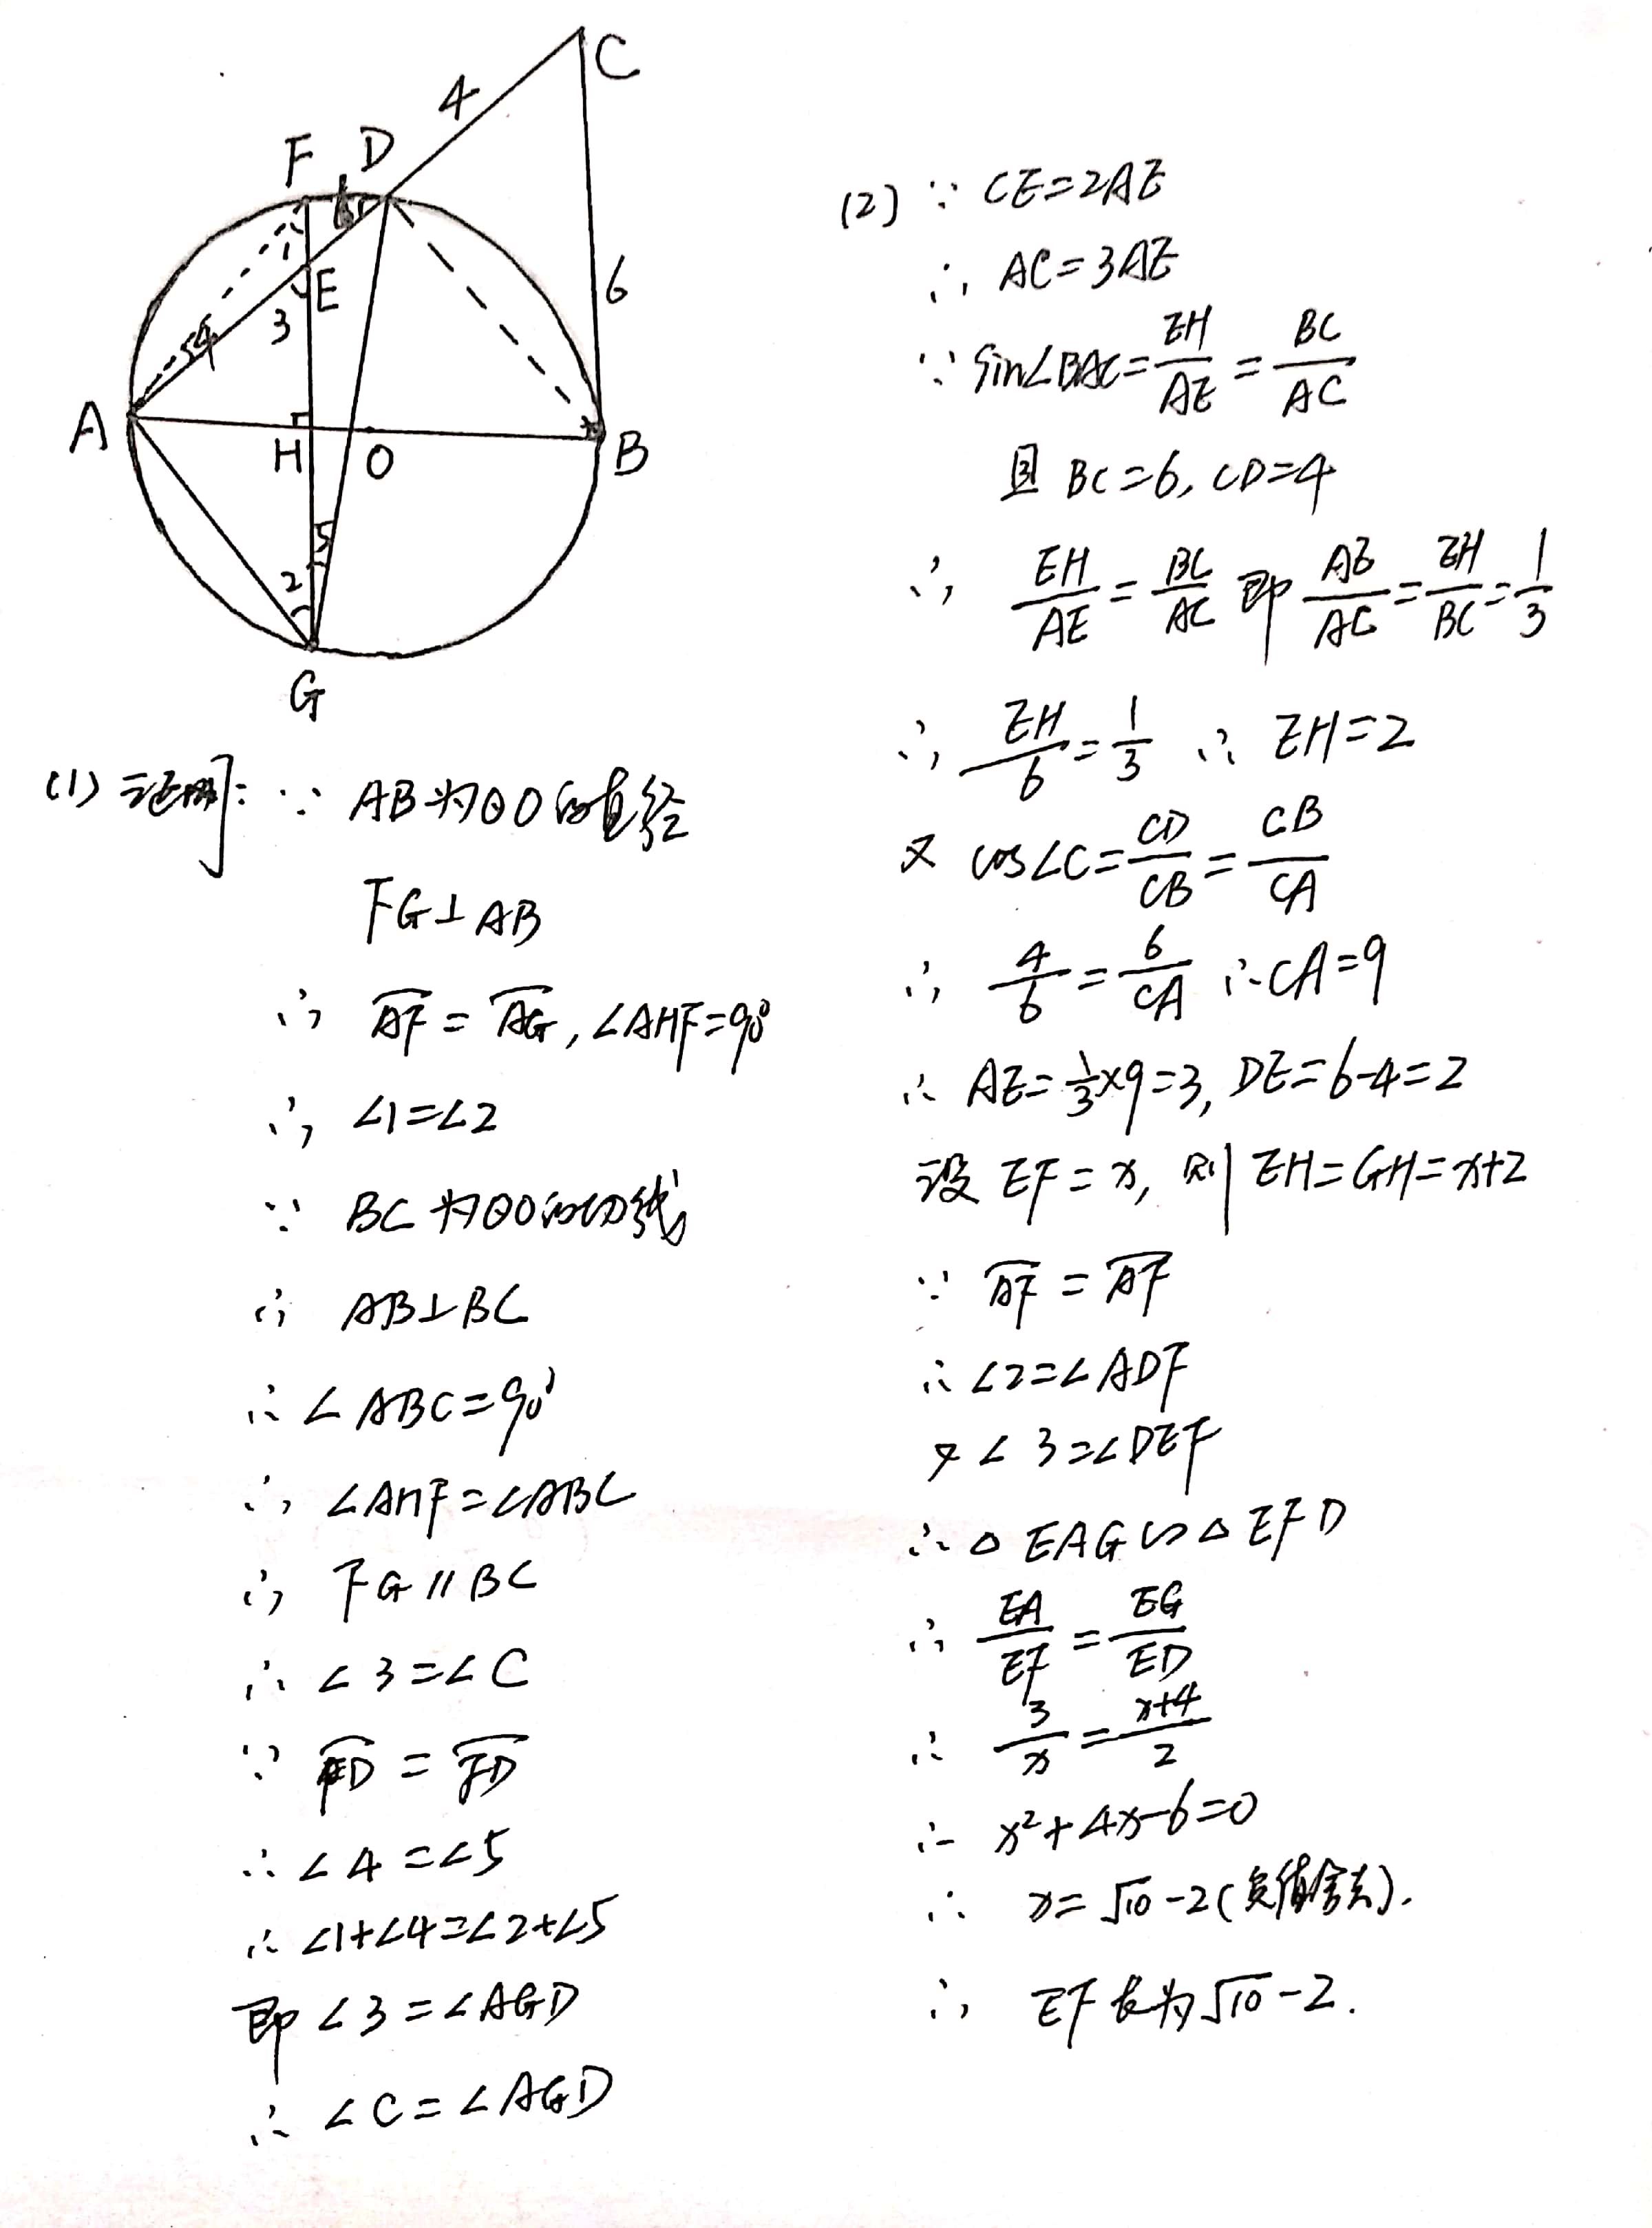 C
4
F D
6
1
E
3
4
A
H O B
5
2
G
(1) 证明: ∵ AB为⊙O的直径
FG⊥AB
∴ AF⌒ = AG⌒, ∠AHF=90°
∴ ∠1=∠2
∵ BC为⊙O的切线
∴ AB⊥BC
∴ ∠ABC=90°
∴ ∠AHF=∠ABC
∴ FG∥BC
∴ ∠3=∠C
∵ FD⌒ = FD⌒
∴ ∠4=∠5
∴ ∠1+∠4=∠2+∠5
即 ∠3=∠AGD
∴ ∠C=∠AGD
(2) ∵ CE=2AE
∴ AC=3AE
∵ Sin∠BAC=EH/AE=BC/AC
且 BC=6, CD=4
∴ EH/AE=BC/AC 即 AE/AC=EH/BC=1/3
∴ EH/6=1/3 ∴ EH=2
又 cos∠C=CD/CB=CB/CA
∴ 4/6=6/CA ∴CA=9
∴ AE=1/3×9=3, DE=6-4=2
设 EF=x, 则 EH=GH=x+2
∵ AF⌒ = AF⌒
∴ ∠2=∠ADF
又 ∠3=∠DEF
∴ △EAG∽△EFD
∴ EA/EF=EG/ED
∴ 3/x=x+4/2
∴ x²+4x-6=0
∴ x=√10-2(负值舍去).
∴ EF长为√10-2.